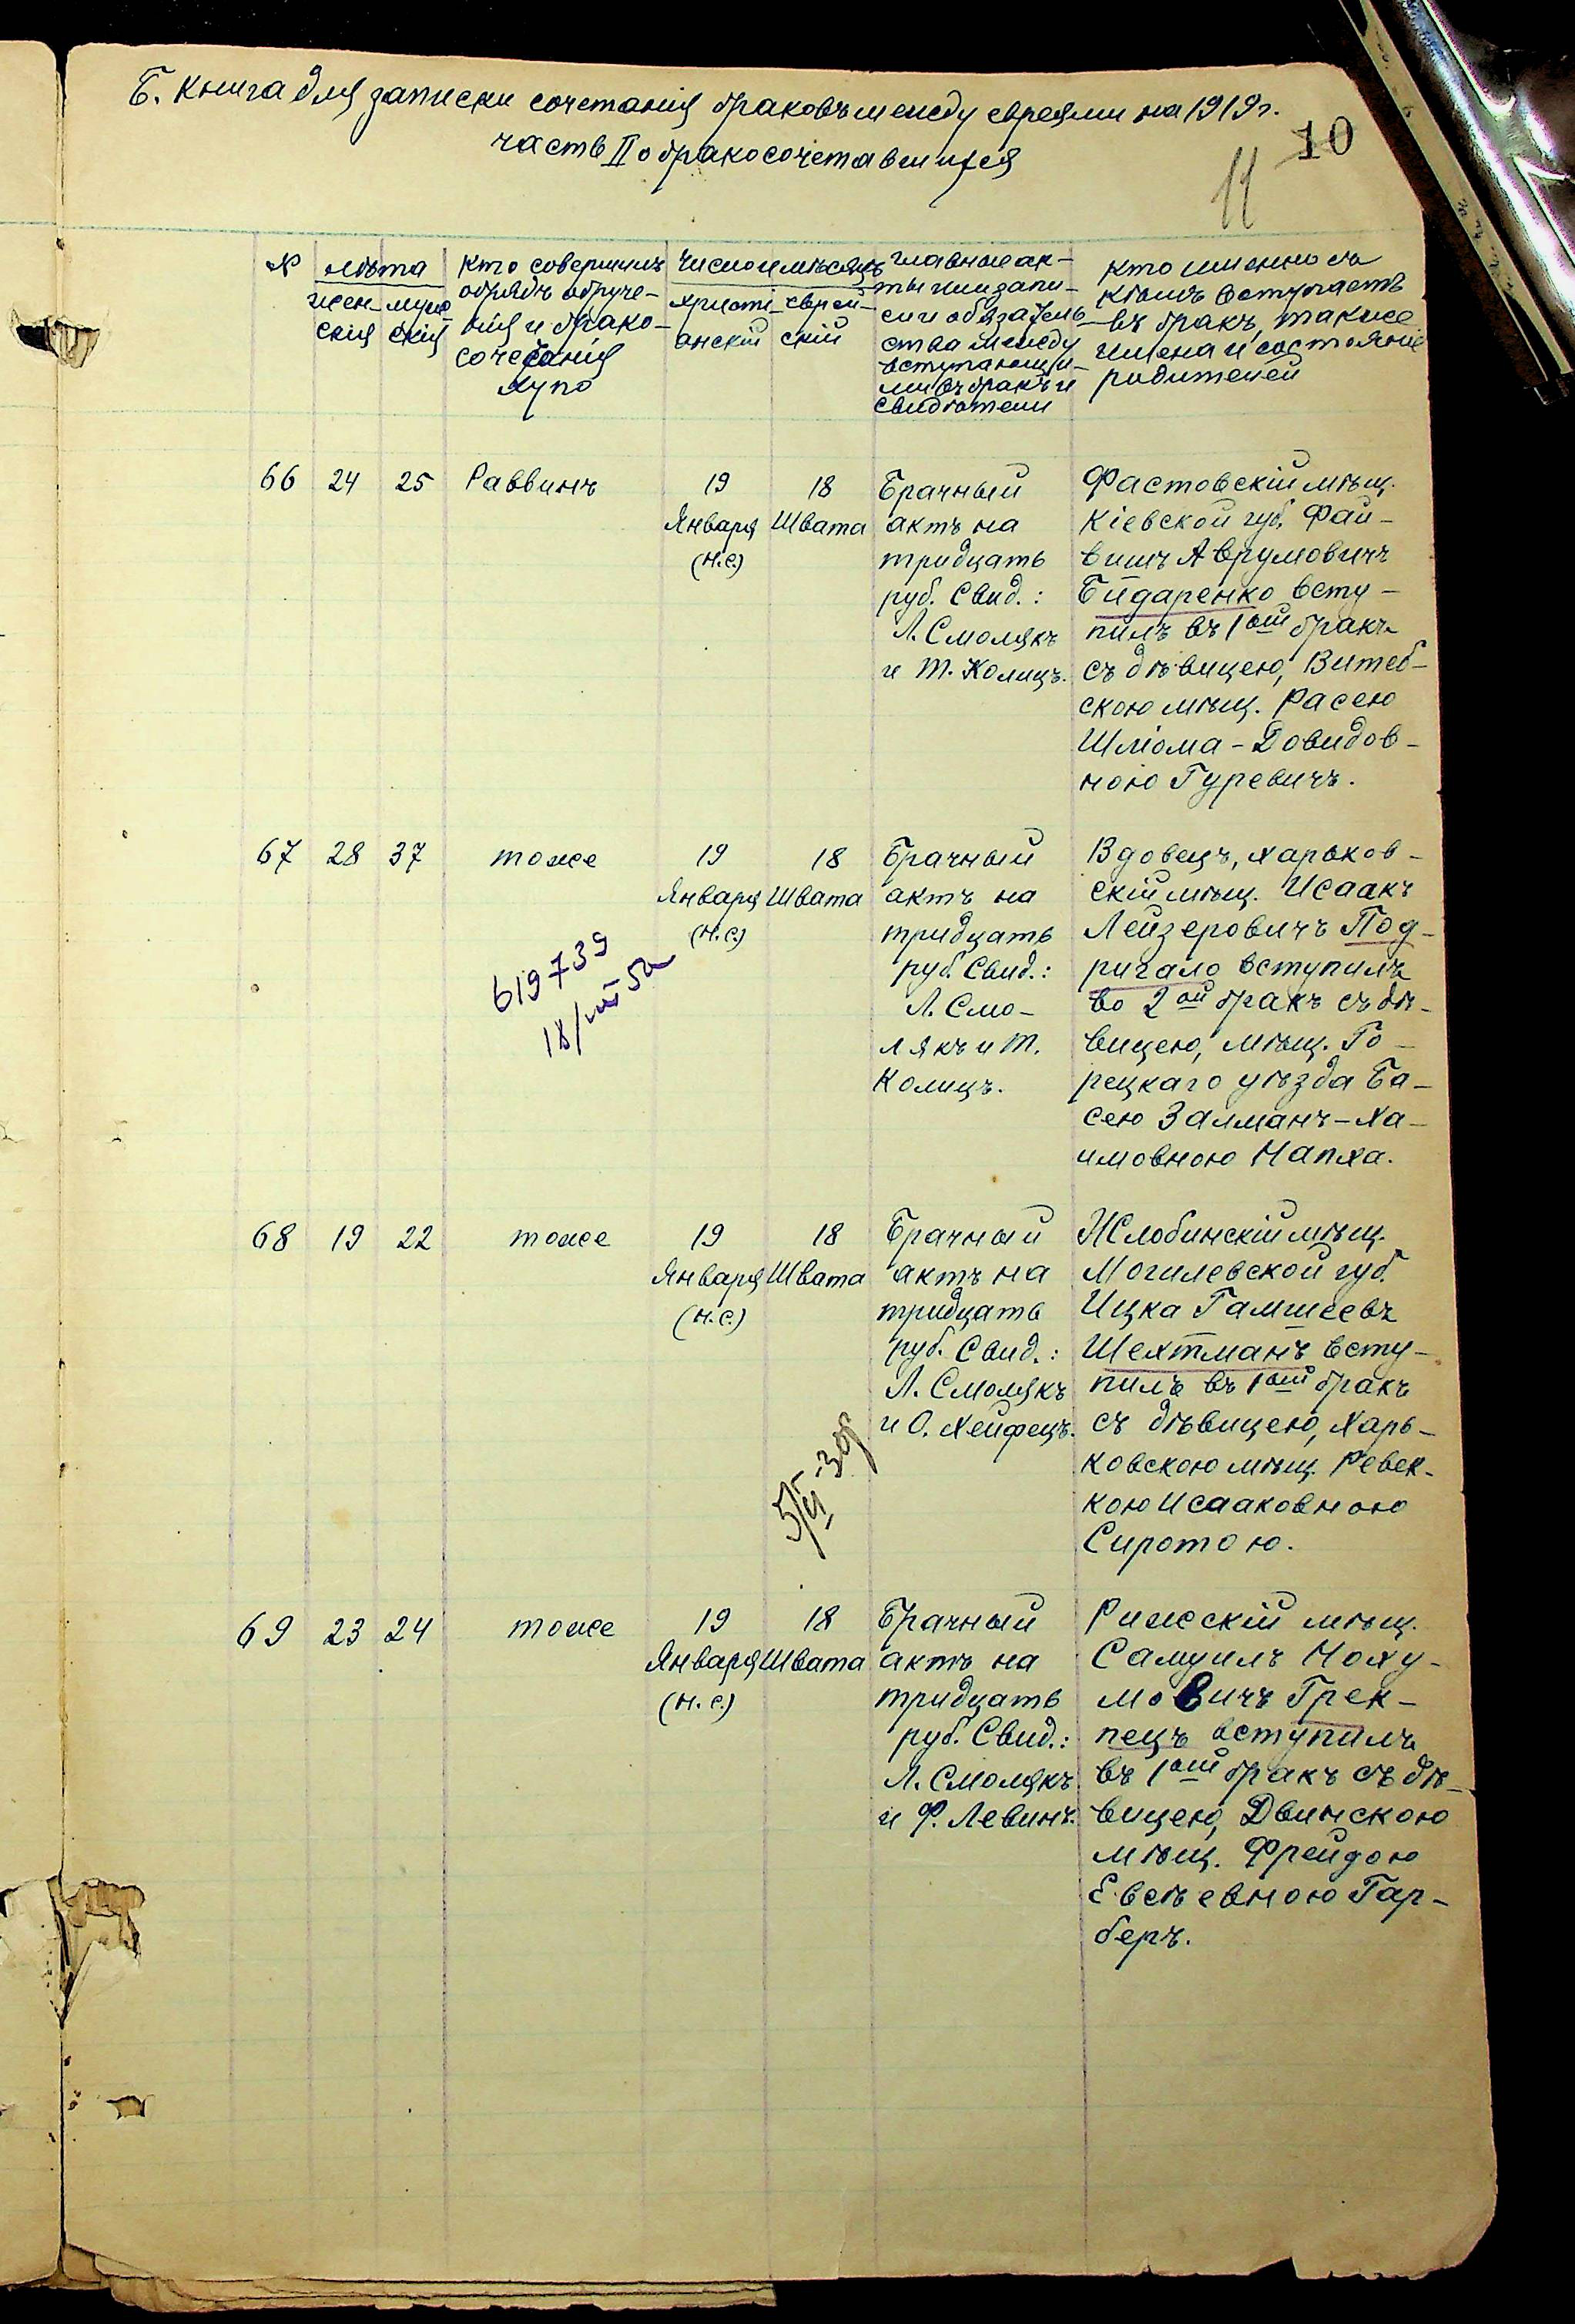 Б. Книга для записки сочетанія браковъ между евреями на 1919 г.
часть II о бракосочетавшихся
10
11
№
лѣта
жен-
скія
муж
скія
кто совершилъ
обрядъ обруче-
нія и брако-
сочетанія
хупо
число и мѣсяцъ
христі-
анскій
еврей-
скій
главные ак-
ты или запи-
си и обязатель-
ства между
вступающи-
ми въ бракъ и
свидѣтели
кто именно съ
кѣмъ вступаетъ
въ бракъ, также
имена и состояніе
родителей
66 24 25 Раввинъ
19
Января
(н.с.)
18
Швата
Брачный
актъ на
тридцать
руб. Свид.:
Л. Смолякъ
и Т. Колицъ.
Фастовскій мѣщ.
Кіевской губ. Фай-
вишъ Аврумовичъ
Бидаренко всту-
пилъ въ 1ый бракъ
съ дѣвицею, Витеб-
скою мѣщ. Расею
Шліома-Довидов-
ною Гуревичъ.
67 28 37 тоже
19
Января
(н.с.)
18
Швата
619739
18/VIII 52
Брачный
актъ на
тридцать
руб. Свид.:
Л. Смо-
лякъ и Т.
Колицъ.
Вдовецъ, харьков-
скій мѣщ. Исаакъ
Лейзеровичъ Под-
ригало вступилъ
во 2ой бракъ съ дѣ-
вицею, мѣщ. Го-
рецкаго уѣзда Ба-
сею Залманъ-Ха-
имовною Напха.
68 19 22 тоже
19
Января
(н.с.)
18
Швата
Брачный
актъ на
тридцать
руб. Свид.:
Л. Смолякъ
и О. Хейфецъ.
Жлобинскій мѣщ.
Могилевской губ.
Ицка Гамшеевъ
Шехтманъ всту-
пилъ въ 1ый бракъ
съ дѣвицею, Харь-
ковскою мѣщ. Ревек-
кою Исааковною
Сиротою.
69 23 24 тоже
19
Января
(н.с.)
18
Швата
Брачный
актъ на
тридцать
руб. Свид.:
Л. Смолякъ
и Ф. Левинъ.
Рижскій мѣщ.
Самуилъ Ноху-
мовичъ Грек-
пецъ вступилъ
въ 1ый бракъ съ дѣ-
вицею, Двинскою
мѣщ. Фрейдою
Евсѣевною Гар-
беръ.